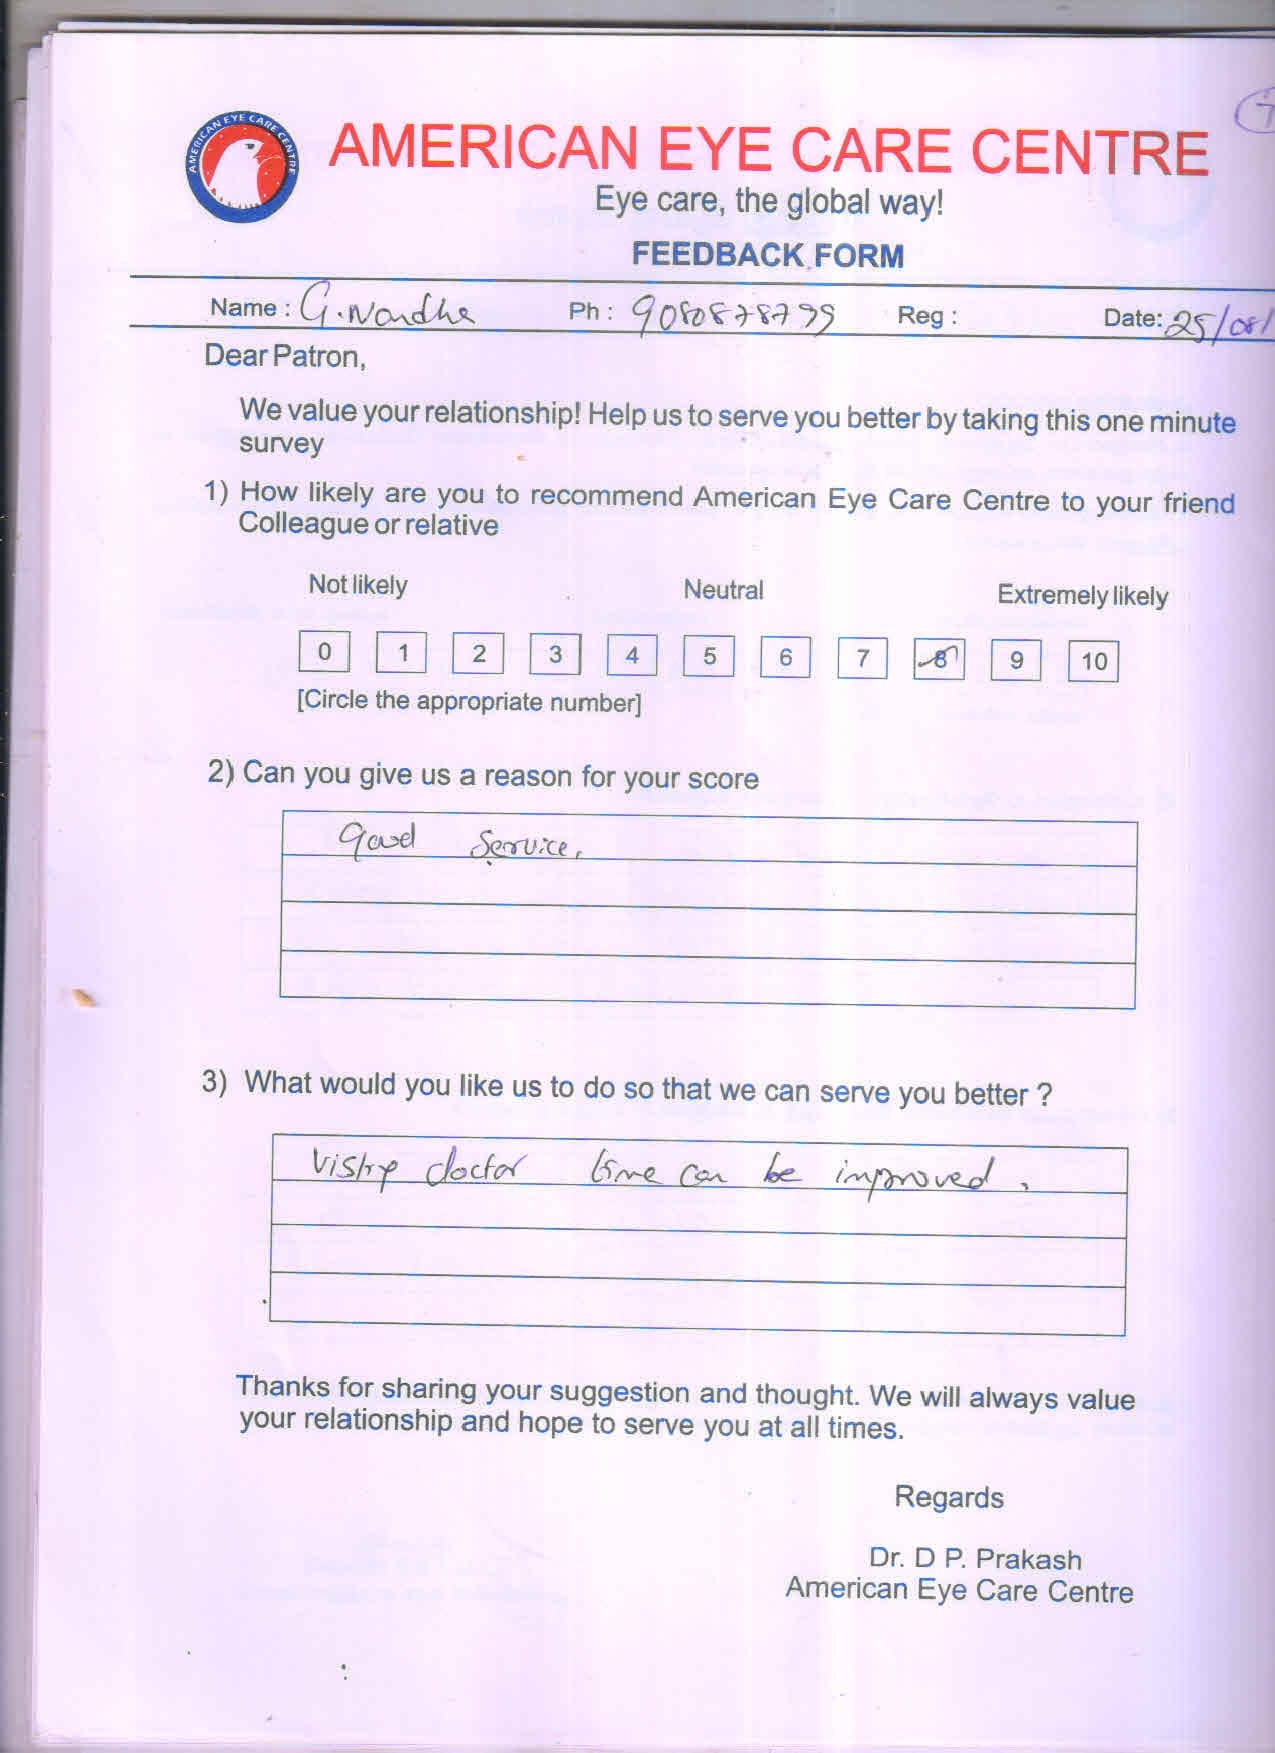 AMERICAN EYE CARE CENTRE
AMERICAN EYE CARE CENTRE
Eye care, the global way!
FEEDBACK FORM
Name : G. Nandha Ph : Reg : Date: 25/08/
Dear Patron,
We value your relationship! Help us to serve you better by taking this one minute
survey
1) How likely are you to recommend American Eye Care Centre to your friend
Colleague or relative
Not likely Neutral Extremely likely
0 1 2 3 4 5 6 7 8 9 10
[Circle the appropriate number]
2) Can you give us a reason for your score
Good Service,
3) What would you like us to do so that we can serve you better ?
doctor time can be improved.
Thanks for sharing your suggestion and thought. We will always value
your relationship and hope to serve you at all times.
Regards
Dr. D P. Prakash
American Eye Care Centre